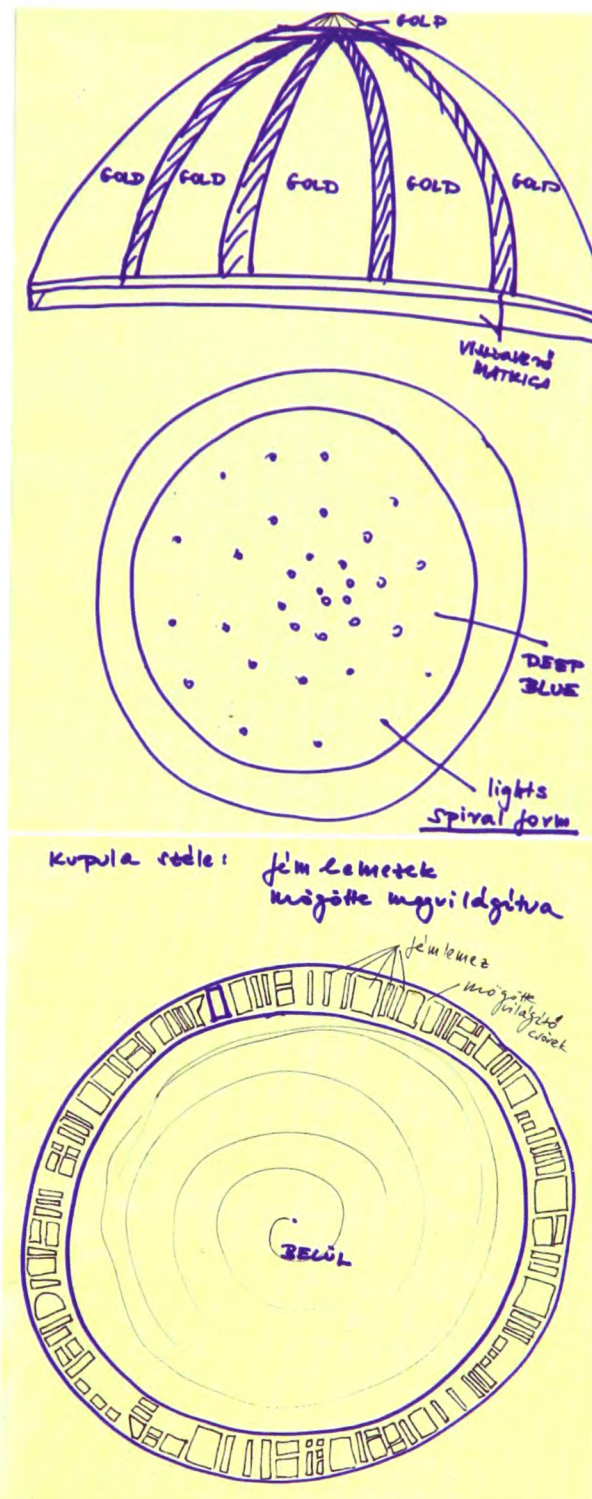 GOLD
GOLD
GOLD
GOLD
GOLD
GOLD
MATRICA
DEEP
BLUE
lights
spiral form
Kupula széle: fém lemezek
mögötte megvilágítva
fémlemez
mögötte
világító
csövek
BELÜL